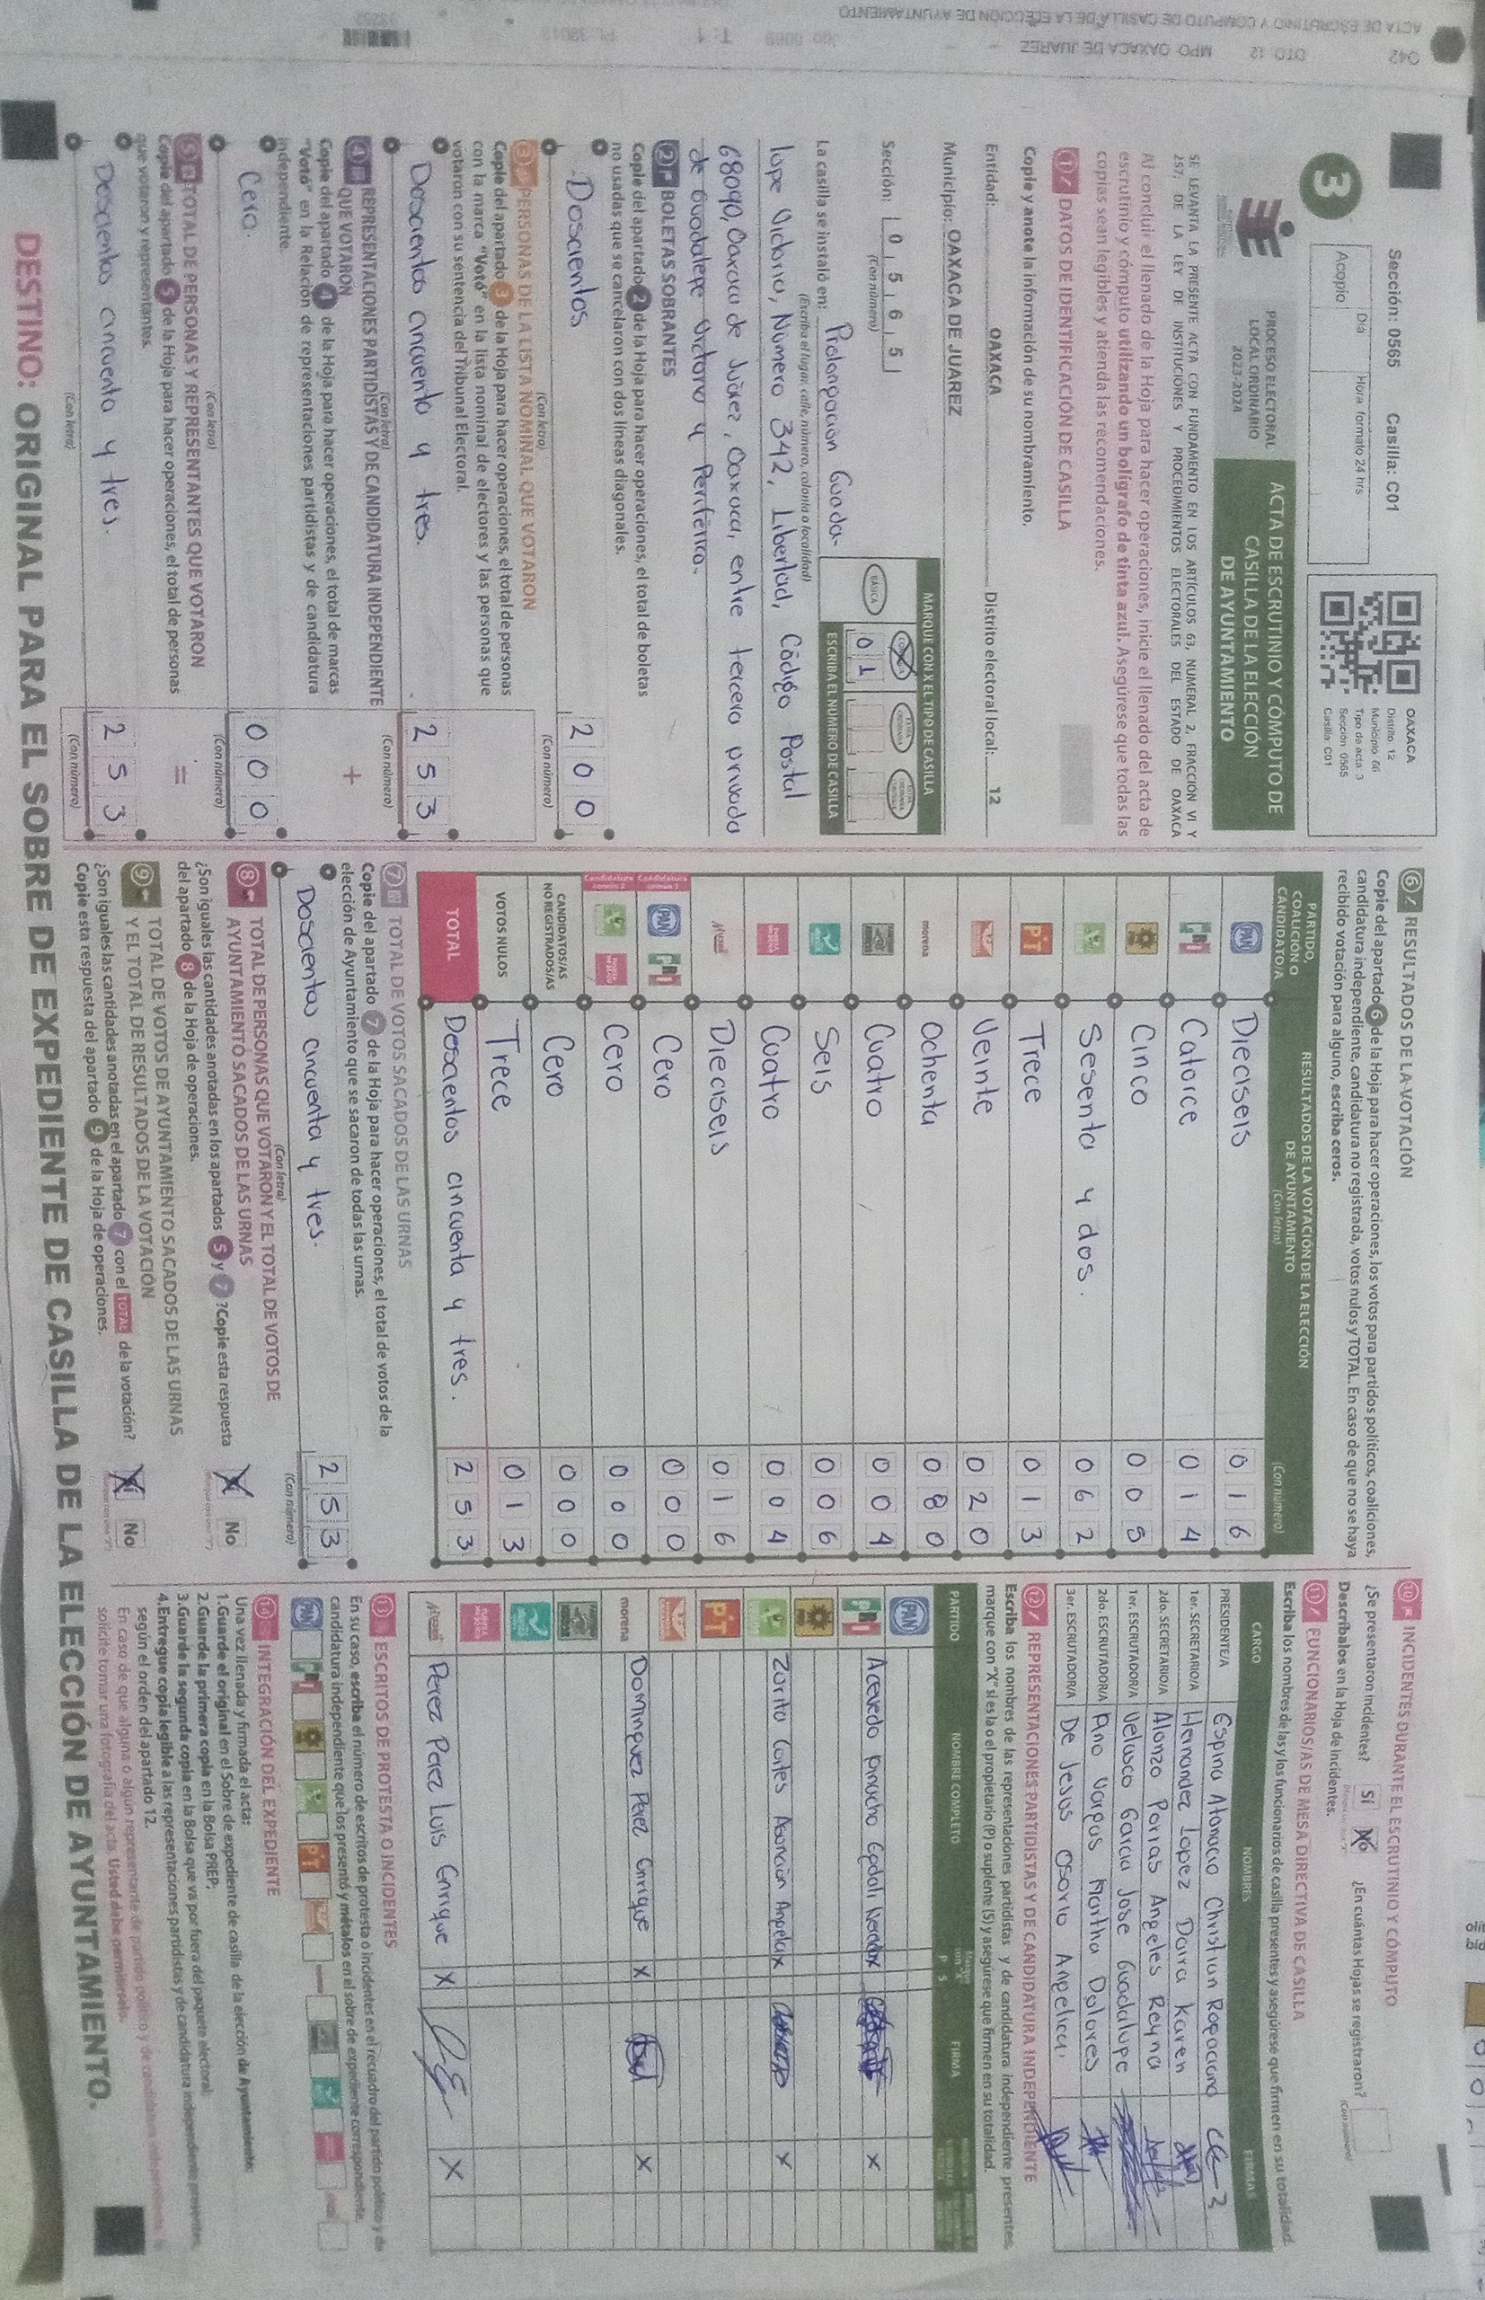 Sección: 0565 Casilla: C01
3
Día Hora formato 24 hrs
Acopio
OAXACA
Distrito 12
Municipio 66
Tipo de acta 3
Sección 0565
Casilla C01
PROCESO ELECTORAL
LOCAL ORDINARIO
2023-2024
ACTA DE ESCRUTINIO Y CÓMPUTO DE
CASILLA DE LA ELECCIÓN
DE AYUNTAMIENTO
SE LEVANTA LA PRESENTE ACTA CON FUNDAMENTO EN LOS ARTÍCULOS 63, NUMERAL 2, FRACCIÓN VI Y
257, DE LA LEY DE INSTITUCIONES Y PROCEDIMIENTOS ELECTORALES DEL ESTADO DE OAXACA
Al concluir el llenado de la Hoja para hacer operaciones, inicie el llenado del acta de
escrutinio y cómputo utilizando un bolígrafo de tinta azul. Asegúrese que todas las
copias sean legibles y atienda las recomendaciones.
1 DATOS DE IDENTIFICACIÓN DE CASILLA
Copie y anote la información de su nombramiento.
Entidad: OAXACA Distrito electoral local: 12
Municipio: OAXACA DE JUAREZ
Sección: 0 5 6 5
(Con número)
MARQUE CON X EL TIPO DE CASILLA
BÁSICA
ESCRIBA EL NÚMERO DE CASILLA
0 1
La casilla se instaló en: Prolongación Guada-
(Escriba el lugar, calle, número, colonia o localidad)
lupe Victoria, Número 342, Libertad, Código Postal
68090, Oaxaca de Juárez, Oaxaca, entre tercera privada
de Guadalupe Victoria y Periférico.
2 BOLETAS SOBRANTES
Copie del apartado 2 de la Hoja para hacer operaciones, el total de boletas
no usadas que se cancelaron con dos líneas diagonales.
Doscientos 2 0 0
(Con letra) (Con número)
3 PERSONAS DE LA LISTA NOMINAL QUE VOTARON
Copie del apartado 3 de la Hoja para hacer operaciones, el total de personas
con la marca "Votó" en la lista nominal de electores y las personas que
votaron con su sentencia del Tribunal Electoral.
Doscientos cincuenta y tres. 2 5 3
(Con letra) (Con número)
4 REPRESENTACIONES PARTIDISTAS Y DE CANDIDATURA INDEPENDIENTE
QUE VOTARON
Copie del apartado 4 de la Hoja para hacer operaciones, el total de marcas
"Votó" en la Relación de representaciones partidistas y de candidatura
independiente.
+
Cero. 0 0 0
(Con letra) (Con número)
5 TOTAL DE PERSONAS Y REPRESENTANTES QUE VOTARON
Copie del apartado 5 de la Hoja para hacer operaciones, el total de personas
que votaron y representantes.
=
Doscientos cincuenta y tres. 2 5 3
(Con letra) (Con número)
6 RESULTADOS DE LA VOTACIÓN
Copie del apartado 6 de la Hoja para hacer operaciones, los votos para partidos políticos, coaliciones,
candidatura independiente, candidatura no registrada, votos nulos y TOTAL. En caso de que no se haya
recibido votación para alguno, escriba ceros.
PARTIDO,
COALICIÓN O
CANDIDATO/A
RESULTADOS DE LA VOTACIÓN DE LA ELECCIÓN
DE AYUNTAMIENTO
(Con letra) (Con número)
PAN Dieciseis 0 1 6
PRI Catorce 0 1 4
Cinco 0 0 5
Sesenta y dos. 0 6 2
PT Trece 0 1 3
Veinte 0 2 0
morena Ochenta 0 8 0
Cuatro 0 0 4
Seis 0 0 6
Cuatro 0 0 4
Dieciseis 0 1 6
Candidatura común 1 PAN PRI Cero 0 0 0
Candidatura común 2 Cero 0 0 0
CANDIDATOS/AS
NO REGISTRADOS/AS Cero 0 0 0
VOTOS NULOS Trece 0 1 3
TOTAL Doscientos cincuenta y tres. 2 5 3
7 TOTAL DE VOTOS SACADOS DE LAS URNAS
Copie del apartado 7 de la Hoja para hacer operaciones, el total de votos de la
elección de Ayuntamiento que se sacaron de todas las urnas.
Doscientos cincuenta y tres. 2 5 3
(Con letra) (Con número)
8 TOTAL DE PERSONAS QUE VOTARON Y EL TOTAL DE VOTOS DE
AYUNTAMIENTO SACADOS DE LAS URNAS
¿Son iguales las cantidades anotadas en los apartados 5 y 7 ?Copie esta respuesta
del apartado 8 de la Hoja de operaciones.
X No
9 TOTAL DE VOTOS DE AYUNTAMIENTO SACADOS DE LAS URNAS
Y EL TOTAL DE RESULTADOS DE LA VOTACIÓN
¿Son iguales las cantidades anotadas en el apartado 7 con el TOTAL de la votación?
Copie esta respuesta del apartado 9 de la Hoja de operaciones.
X No
10 INCIDENTES DURANTE EL ESCRUTINIO Y CÓMPUTO
¿Se presentaron incidentes? Sí No ¿En cuántas Hojas se registraron?
Descríbalos en la Hoja de Incidentes.
11 FUNCIONARIOS/AS DE MESA DIRECTIVA DE CASILLA
Escriba los nombres de las y los funcionarios de casilla presentes y asegúrese que firmen en su totalidad
CARGO NOMBRES FIRMAS
PRESIDENTE/A Espina Atanacio Christian
1er. SECRETARIO/A Hernandez Lopez Daira Karen
2do. SECRETARIO/A Alonzo Porras Angeles Reyna
1er. ESCRUTADOR/A Velasco Garcia Jose Guadalupe
2do. ESCRUTADOR/A Pino Vargas Martha Dolores
3er. ESCRUTADOR/A De Jesus Osorio Angelica
12 REPRESENTACIONES PARTIDISTAS Y DE CANDIDATURA INDEPENDIENTE
Escriba los nombres de las representaciones partidistas y de candidatura independiente presentes,
marque con "X" si es la o el propietario (P) o suplente (S) y asegúrese que firmen en su totalidad.
PARTIDO NOMBRE COMPLETO P S FIRMA
PAN
PRI Acevedo X X
Zorita Cortes Asunción Angela X X
PT
morena Dominguez Perez Enrique X X
Perez Perez Luis Enrique X X
13 ESCRITOS DE PROTESTA O INCIDENTES
En su caso, escriba el número de escritos de protesta o incidentes en el recuadro del partido político y de
candidatura independiente que los presentó y métalos en el sobre de expediente correspondiente.
PAN PRI PT
14 INTEGRACIÓN DEL EXPEDIENTE
Una vez llenada y firmada el acta:
1.Guarde el original en el Sobre de expediente de casilla de la elección de Ayuntamiento;
2.Guarde la primera copia en la Bolsa PREP;
3.Guarde la segunda copia en la Bolsa que va por fuera del paquete electoral;
4.Entregue copia legible a las representaciones partidistas y de candidatura independiente presentes,
según el orden del apartado 12.
En caso de que alguna o algún representante de partido político y de candidatura independiente
solicite tomar una fotografía del acta. Usted debe permitírselo.
DESTINO: ORIGINAL PARA EL SOBRE DE EXPEDIENTE DE CASILLA DE LA ELECCIÓN DE AYUNTAMIENTO.
042 DTO: 12 MPO: OAXACA DE JUAREZ
ACTA DE ESCRUTINIO Y COMPUTO DE CASILLA DE LA ELECCIÓN DE AYUNTAMIENTO